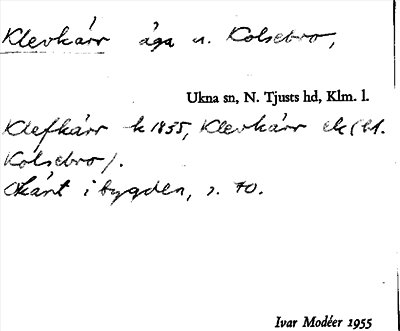 Klevkärr äga u. Kolsebro,
Ukna sn, N. Tjusts hd, Klm. l.
Klefkärr k 1855, Klevkärr ek (bl.
Kolsebro).
Okänt i bygden, s. 70.
Ivar Modéer 1955